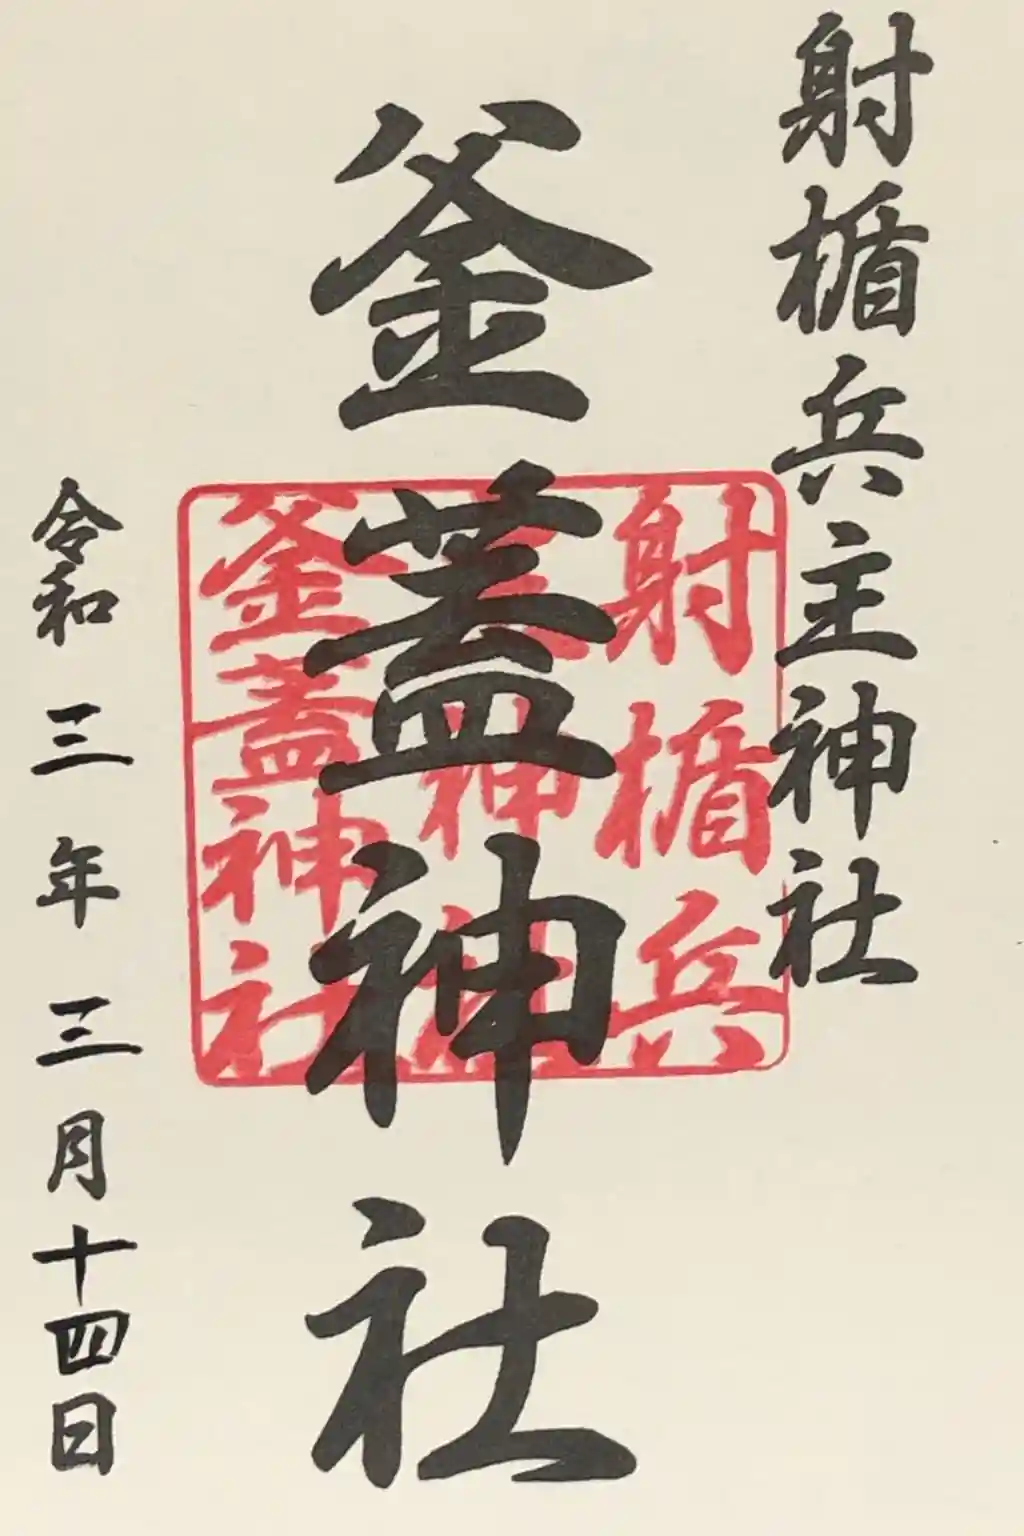 射楯兵主神社
釜蓋神社
令和三年三月十四日
射楯兵
神社
釜蓋神社